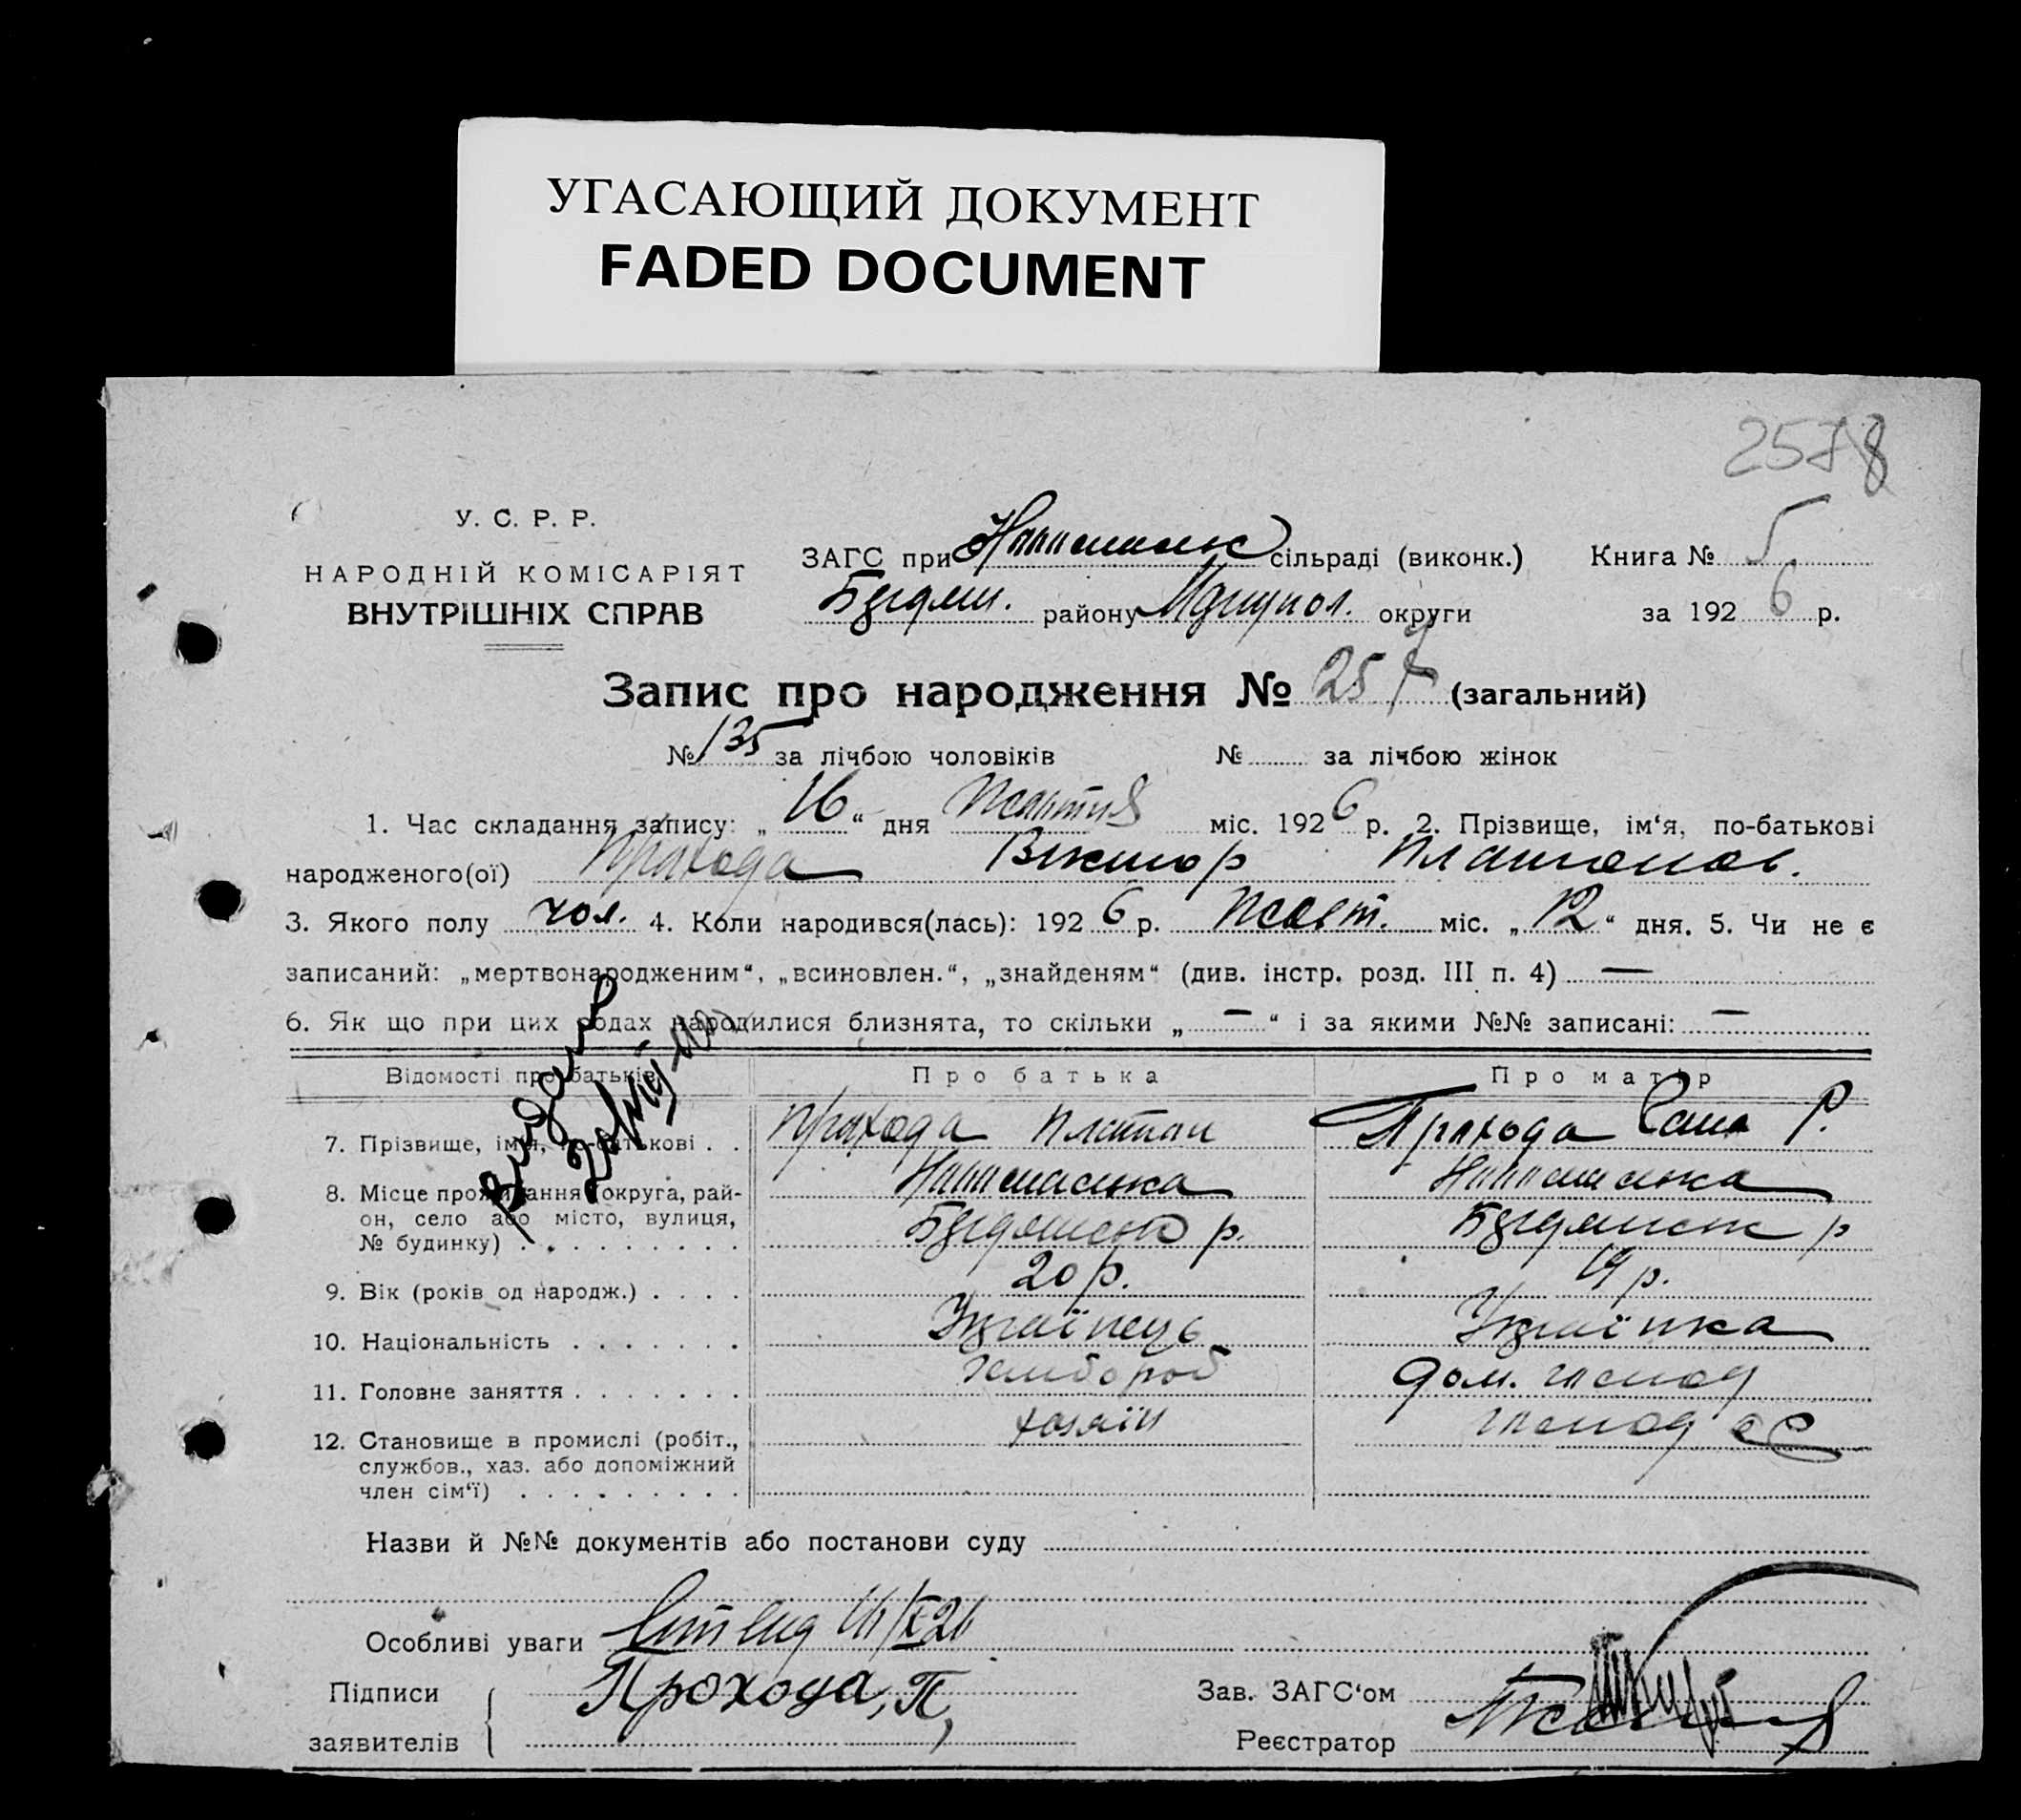 УГАСАЮЩИЙ ДОКУМЕНТ
FADED DOCUMENT
2578
У. С. Р. Р.
НАРОДНІЙ КОМІСАРІЯТ
ВНУТРІШНІХ СПРАВ
ЗАГС при сільраді (виконк.) Книга № 5
району Маріупол. округи за 1926 р.
Запис про народження № 257 (загальний)
№ 135 за лічбою чоловіків № за лічбою жінок
1. Час складання запису: „16“ дня Жовтня міс. 1926 р. 2. Прізвище, ім‘я, по-батькові
народженого(ої) Прохода Віктор Платонов.
3. Якого полу чол. 4. Коли народився(лась): 1926 р. Жовт. міс. „12“ дня. 5. Чи не є
записаний: „мертвонародженим“, „всиновлен.“, „знайденям“ (див. інстр. розд. III п. 4) —
6. Як що при цих родах народилися близнята, то скільки „—“ і за якими №№ записані: —
Відомості про батьків Про батька Про матір
7. Прізвище, імя, по-батькові . . Прохода Платон Прохода Р.
8. Місце проживання (округа, рай-
он, село або місто, вулиця, р. р
№ будинку) . . . . . . . . .
9. Вік (років од народж.) . . . . 20 р. 19 р.
10. Національність . . . . . . . Україпець Українка
11. Головне заняття . . . . . . . хлібороб дом. господ
12. Становище в промислі (робіт., хозяїн господ
службов., хаз. або допоміжний
член сім‘ї) . . . . . . . . .
Видано
Назви й №№ документів або постанови суду
Особливі уваги
Підписи Прохода, П, Зав. ЗАГС‘ом
заявителів Реєстратор